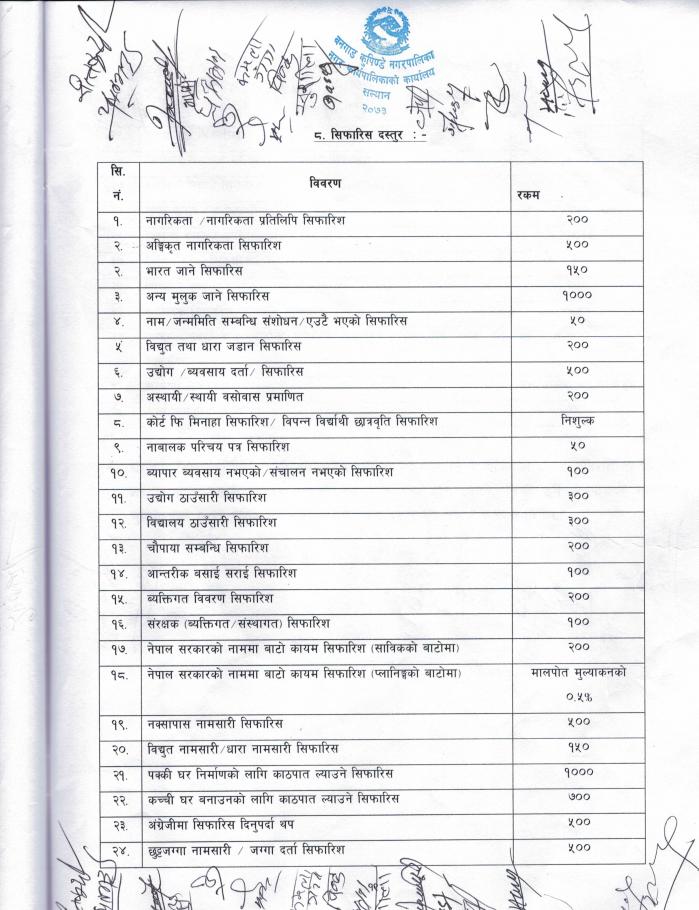 बनगाड कुपिण्डे नगरपालिका
नगर कार्यपालिकाको कार्यालय
सल्यान
२०७३
८. सिफारिस दस्तुर :-
सि. नं. विवरण रकम
१. नागरिकता /नागरिकता प्रतिलिपि सिफारिश २००
२. अङ्गिकृत नागरिकता सिफारिश ५००
२. भारत जाने सिफारिस १५०
३. अन्य मुलुक जाने सिफारिस १०००
४. नाम/जन्ममिति सम्बन्धि संशोधन/एउटै भएको सिफारिस ५०
५ विद्युत तथा धारा जडान सिफारिस २००
६. उद्योग /ब्यवसाय दर्ता/ सिफारिस ५००
७. अस्थायी/स्थायी वसोवास प्रमाणित २००
८. कोर्ट फि मिनाहा सिफारिश/ विपन्न विर्द्याथी छात्रवृति सिफारिश निशुल्क
९. नाबालक परिचय पत्र सिफारिश ५०
१०. ब्यापार ब्यवसाय नभएको/संचालन नभएको सिफारिश १००
११. उद्योग ठाउँसारी सिफारिश ३००
१२. विद्यालय ठाउँसारी सिफारिश ३००
१३. चौपाया सम्बन्धि सिफारिश २००
१४. आन्तरीक बसाई सराई सिफारिश १००
१५. ब्यक्तिगत विवरण सिफारिश २००
१६. संरक्षक (ब्यक्तिगत/संस्थागत) सिफारिश १००
१७. नेपाल सरकारको नाममा बाटो कायम सिफारिश (साविकको बाटोमा) २००
१८. नेपाल सरकारको नाममा बाटो कायम सिफारिश (प्लानिङ्गको बाटोमा) मालपोत मुल्याकनको
०.५%
१९. नक्सापास नामसारी सिफारिस ५००
२०. विद्युत नामसारी/धारा नामसारी सिफारिश १५०
२१. पक्की घर निर्माणको लागि काठपात ल्याउने सिफारिस १०००
२२. कच्ची घर बनाउनको लागि काठपात ल्याउने सिफारिस ७००
२३. अंग्रेजीमा सिफारिस दिनुपर्दा थप ५००
२४. छुट्टजग्गा नामसारी / जग्गा दर्ता सिफारिश ५००